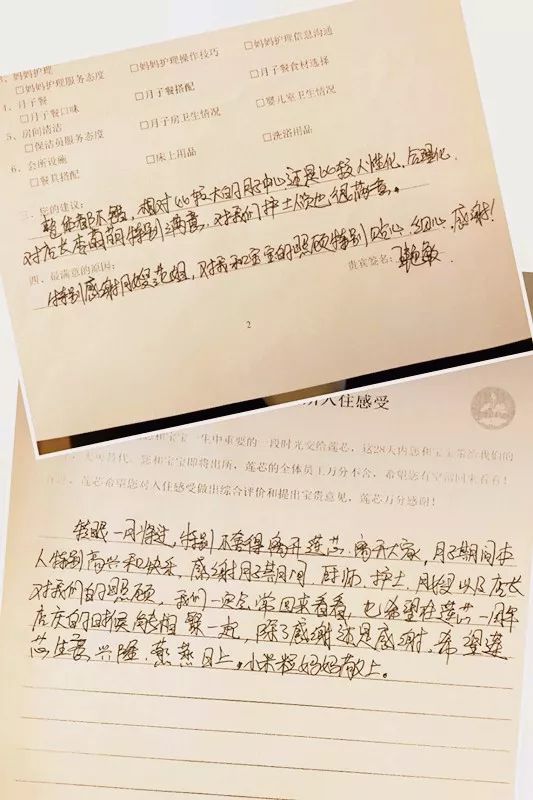 3、妈妈护理
□妈妈护理服务态度 □妈妈护理操作技巧 □妈妈护理信息沟通
4、月子餐
□月子餐口味 □月子餐搭配 □月子餐食材选择
5、房间清洁
□保洁员服务态度 □月子房卫生情况 □婴儿室卫生情况
6、会所设施
□餐具搭配 □床上用品 □洗浴用品
三、您的建议:
整体都不错,相对比较大的月子中心还是比较人性化,合理化.
对店长李南萌特别满意。对我们护士们也很满意。
四、最满意的原因:
特别感谢月嫂范姐,对我和宝宝的照顾特别贴心,细心,感谢!
贵宾签名:
2
入住感受
和宝宝一生中重要的一段时光交给莲芯,这28天内您和宝宝带给我们的
您和宝宝即将出所,莲芯的全体员工万分不舍,希望您有空常回来看看!
莲芯希望您对入住感受做出综合评价和提出宝贵意见,莲芯万分感谢!
转眼一月将过,特别不舍得离开莲芯,离开大家,月子期间本
人特别高兴和快乐,感谢月子期间,厨师,护士,月嫂以及店长
对我们的照顾,我们一定会常回来看看,也希望在莲芯一周年
店庆的时候能相聚一起,除了感谢还是感谢,希望莲
芯生意兴隆,蒸蒸日上。小米粒妈妈敬上。